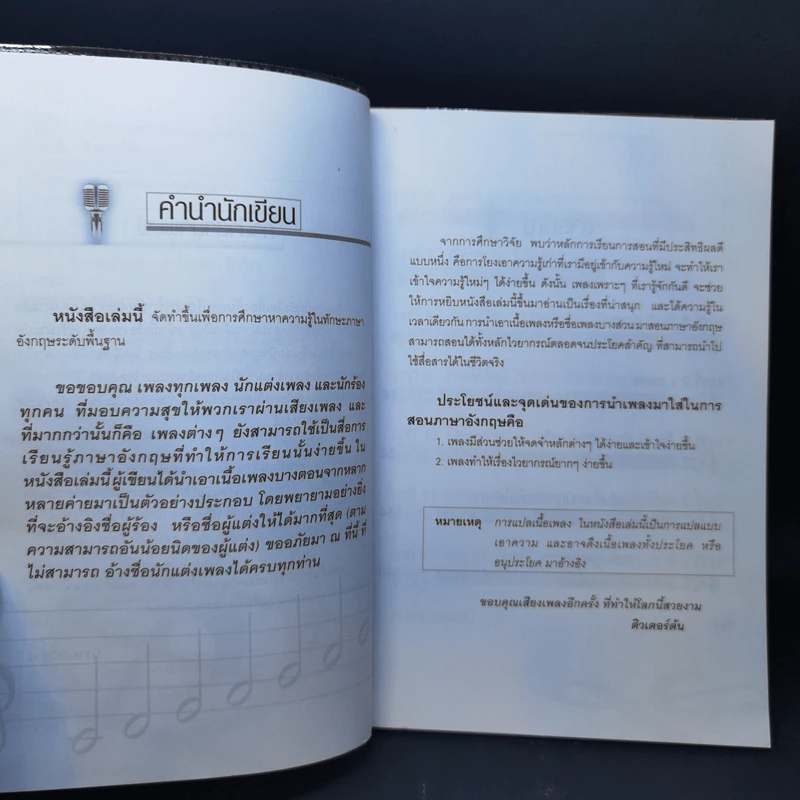 คำนำนักเขียน
หนังสือเล่มนี้ จัดทำขึ้นเพื่อการศึกษาหาความรู้ในทักษะภาษา
อังกฤษระดับพื้นฐาน
ขอขอบคุณ เพลงทุกเพลง นักแต่งเพลง และนักร้อง
ทุกคน ที่มอบความสุขให้พวกเราผ่านเสียงเพลง และ
ที่มากกว่านั้นก็คือ เพลงต่างๆ ยังสามารถใช้เป็นสื่อการ
เรียนรู้ภาษาอังกฤษที่ทำให้การเรียนนั้นง่ายขึ้น ใน
หนังสือเล่มนี้ผู้เขียนได้นำเอาเนื้อเพลงบางตอนจากหลาก
หลายค่ายมาเป็นตัวอย่างประกอบ โดยพยายามอย่างยิ่ง
ที่จะอ้างอิงชื่อผู้ร้อง หรือชื่อผู้แต่งให้ได้มากที่สุด (ตาม
ความสามารถอันน้อยนิดของผู้แต่ง) ขออภัยมา ณ ที่นี้ ที่
ไม่สามารถ อ้างชื่อนักแต่งเพลงได้ครบทุกท่าน
จากการศึกษาวิจัย พบว่าหลักการเรียนการสอนที่มีประสิทธิผลดี
แบบหนึ่ง คือการโยงเอาความรู้เก่าที่เรามีอยู่เข้ากับความรู้ใหม่ จะทำให้เรา
เข้าใจความรู้ใหม่ๆ ได้ง่ายขึ้น ดังนั้น เพลงเพราะๆ ที่เรารู้จักกันดี จะช่วย
ให้การหยิบหนังสือเล่มนี้ขึ้นมาอ่านเป็นเรื่องที่น่าสนุก และได้ความรู้ใน
เวลาเดียวกัน การนำเอาเนื้อเพลงหรือชื่อเพลงบางส่วน มาสอนภาษาอังกฤษ
สามารถสอนได้ทั้งหลักไวยากรณ์ตลอดจนประโยคสำคัญ ที่สามารถนำไป
ใช้สื่อสารได้ในชีวิตจริง
ประโยชน์และจุดเด่นของการนำเพลงมาใส่ในการ
สอนภาษาอังกฤษคือ
1. เพลงมีส่วนช่วยให้จดจำหลักต่างๆ ได้ง่ายและเข้าใจง่ายขึ้น
2. เพลงทำให้เรื่องไวยากรณ์ยากๆ ง่ายขึ้น
หมายเหตุ การแปลเนื้อเพลง ในหนังสือเล่มนี้เป็นการแปลแบบ
เอาความ และอาจดึงเนื้อเพลงทั้งประโยค หรือ
อนุประโยค มาอ้างอิง
ขอบคุณเสียงเพลงอีกครั้ง ที่ทำให้โลกนี้สวยงาม
ติวเตอร์ต้น